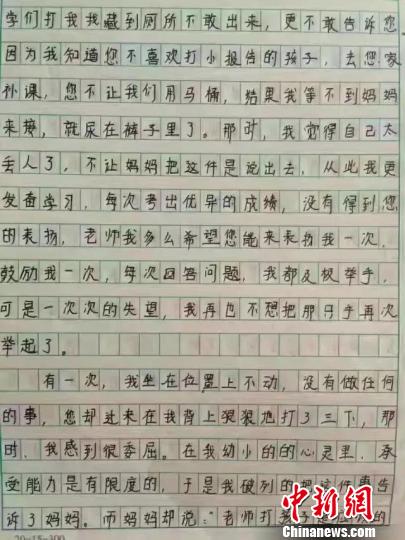 学们打我我藏到厕所不敢出来，更不敢告诉您，
因为我知道您不喜欢打小报告的孩子，去您家
补课，您不让我们用马桶，结果我等不到妈妈
来接，就尿在裤子里了。那时，我觉得自己太
丢人了，不让妈妈把这件是说出去，从此我更
发奋学习，每次考出优异的成绩，没有得到您
的表扬，老师我多么希望您能来表扬我一次，
鼓励我一次，每次回答问题，我都及极举手，
可是一次次的失望，我再也不想把那只手再次
举起了。
有一次，我坐在位置上不动，没有做任何
的事，您却进来在我背上狠狠地打了三下，那
时，我感到很委屈。在我幼小的的心灵里，承
受能力是有限度的，于是我破列的把这件事告
诉了妈妈。而妈妈却说："老师打孩子是
的
20×15=300
中新网
Chinanews.com